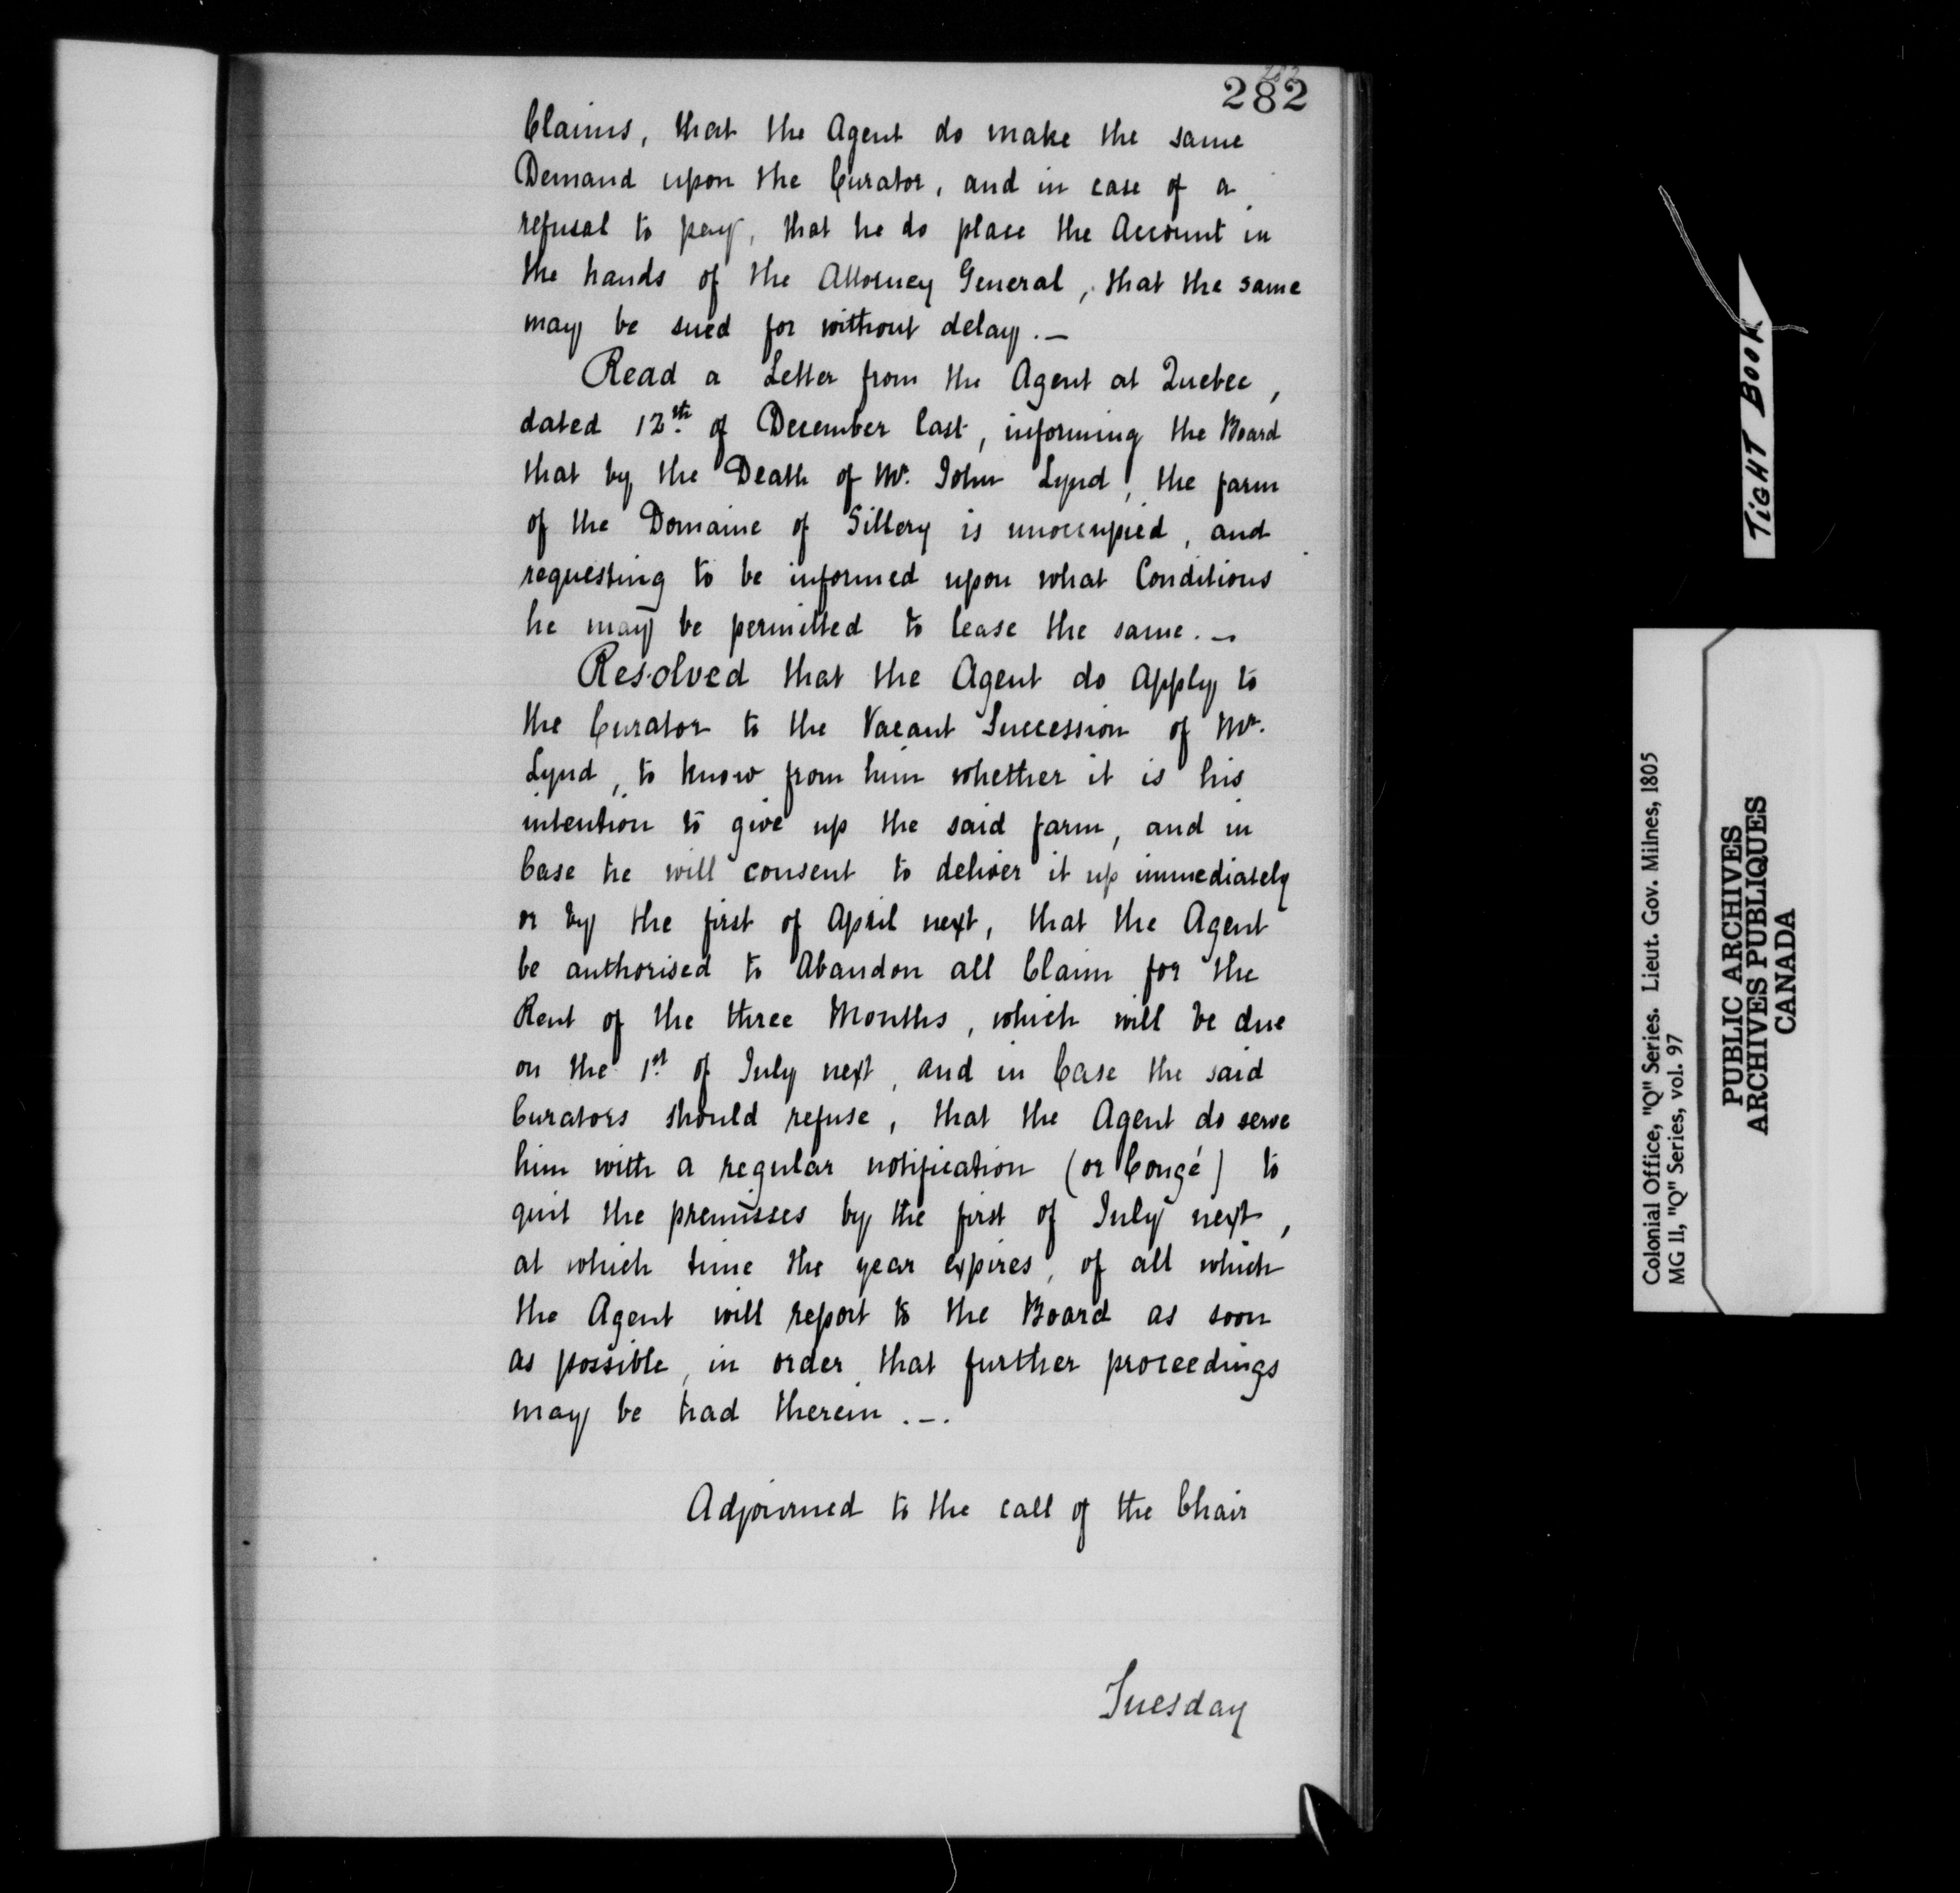 282
Claims, that the Agent do make the same
Demand upon the Curator, and in case of a
refusal to pay, that he do place the Account in
the hands of the Attorney General, that the same
may be sued for without delay.—
Read a Letter from the Agent at Quebec,
dated 12th of December last, informing the Board
that by the Death of Mr. John Lynd, the farm
of the Domaine of Sillery is unoccupied, and
requesting to be informed upon what Conditions
he may be permitted to lease the same.—
Resolved that the Agent do Apply to
the Curator to the Vacant Succession of Mr.
Lynd, to know from him whether it is his
intention to give up the said farm, and in
Case he will consent to deliver it up immediately
or by the first of April next, that the Agent
be authorised to Abandon all Claim for the
Rent of the three Months, which will be due
on the 1st of July next, and in Case the said
Curators should refuse, that the Agent do serve
him with a regular notification (or Congé) to
quit the premisses by the first of July next,
at which time the year expires, of all which
the Agent will report to the Board as soon
as possible, in order that further proceedings
may be had therein.—.
Adjourned to the call of the Chair
Tuesday
TIGHT BOOK
Colonial Office, "Q" Series. Lieut. Gov. Milnes, 1805
MG 11, "Q" Series, vol. 97
PUBLIC ARCHIVES
ARCHIVES PUBLIQUES
CANADA